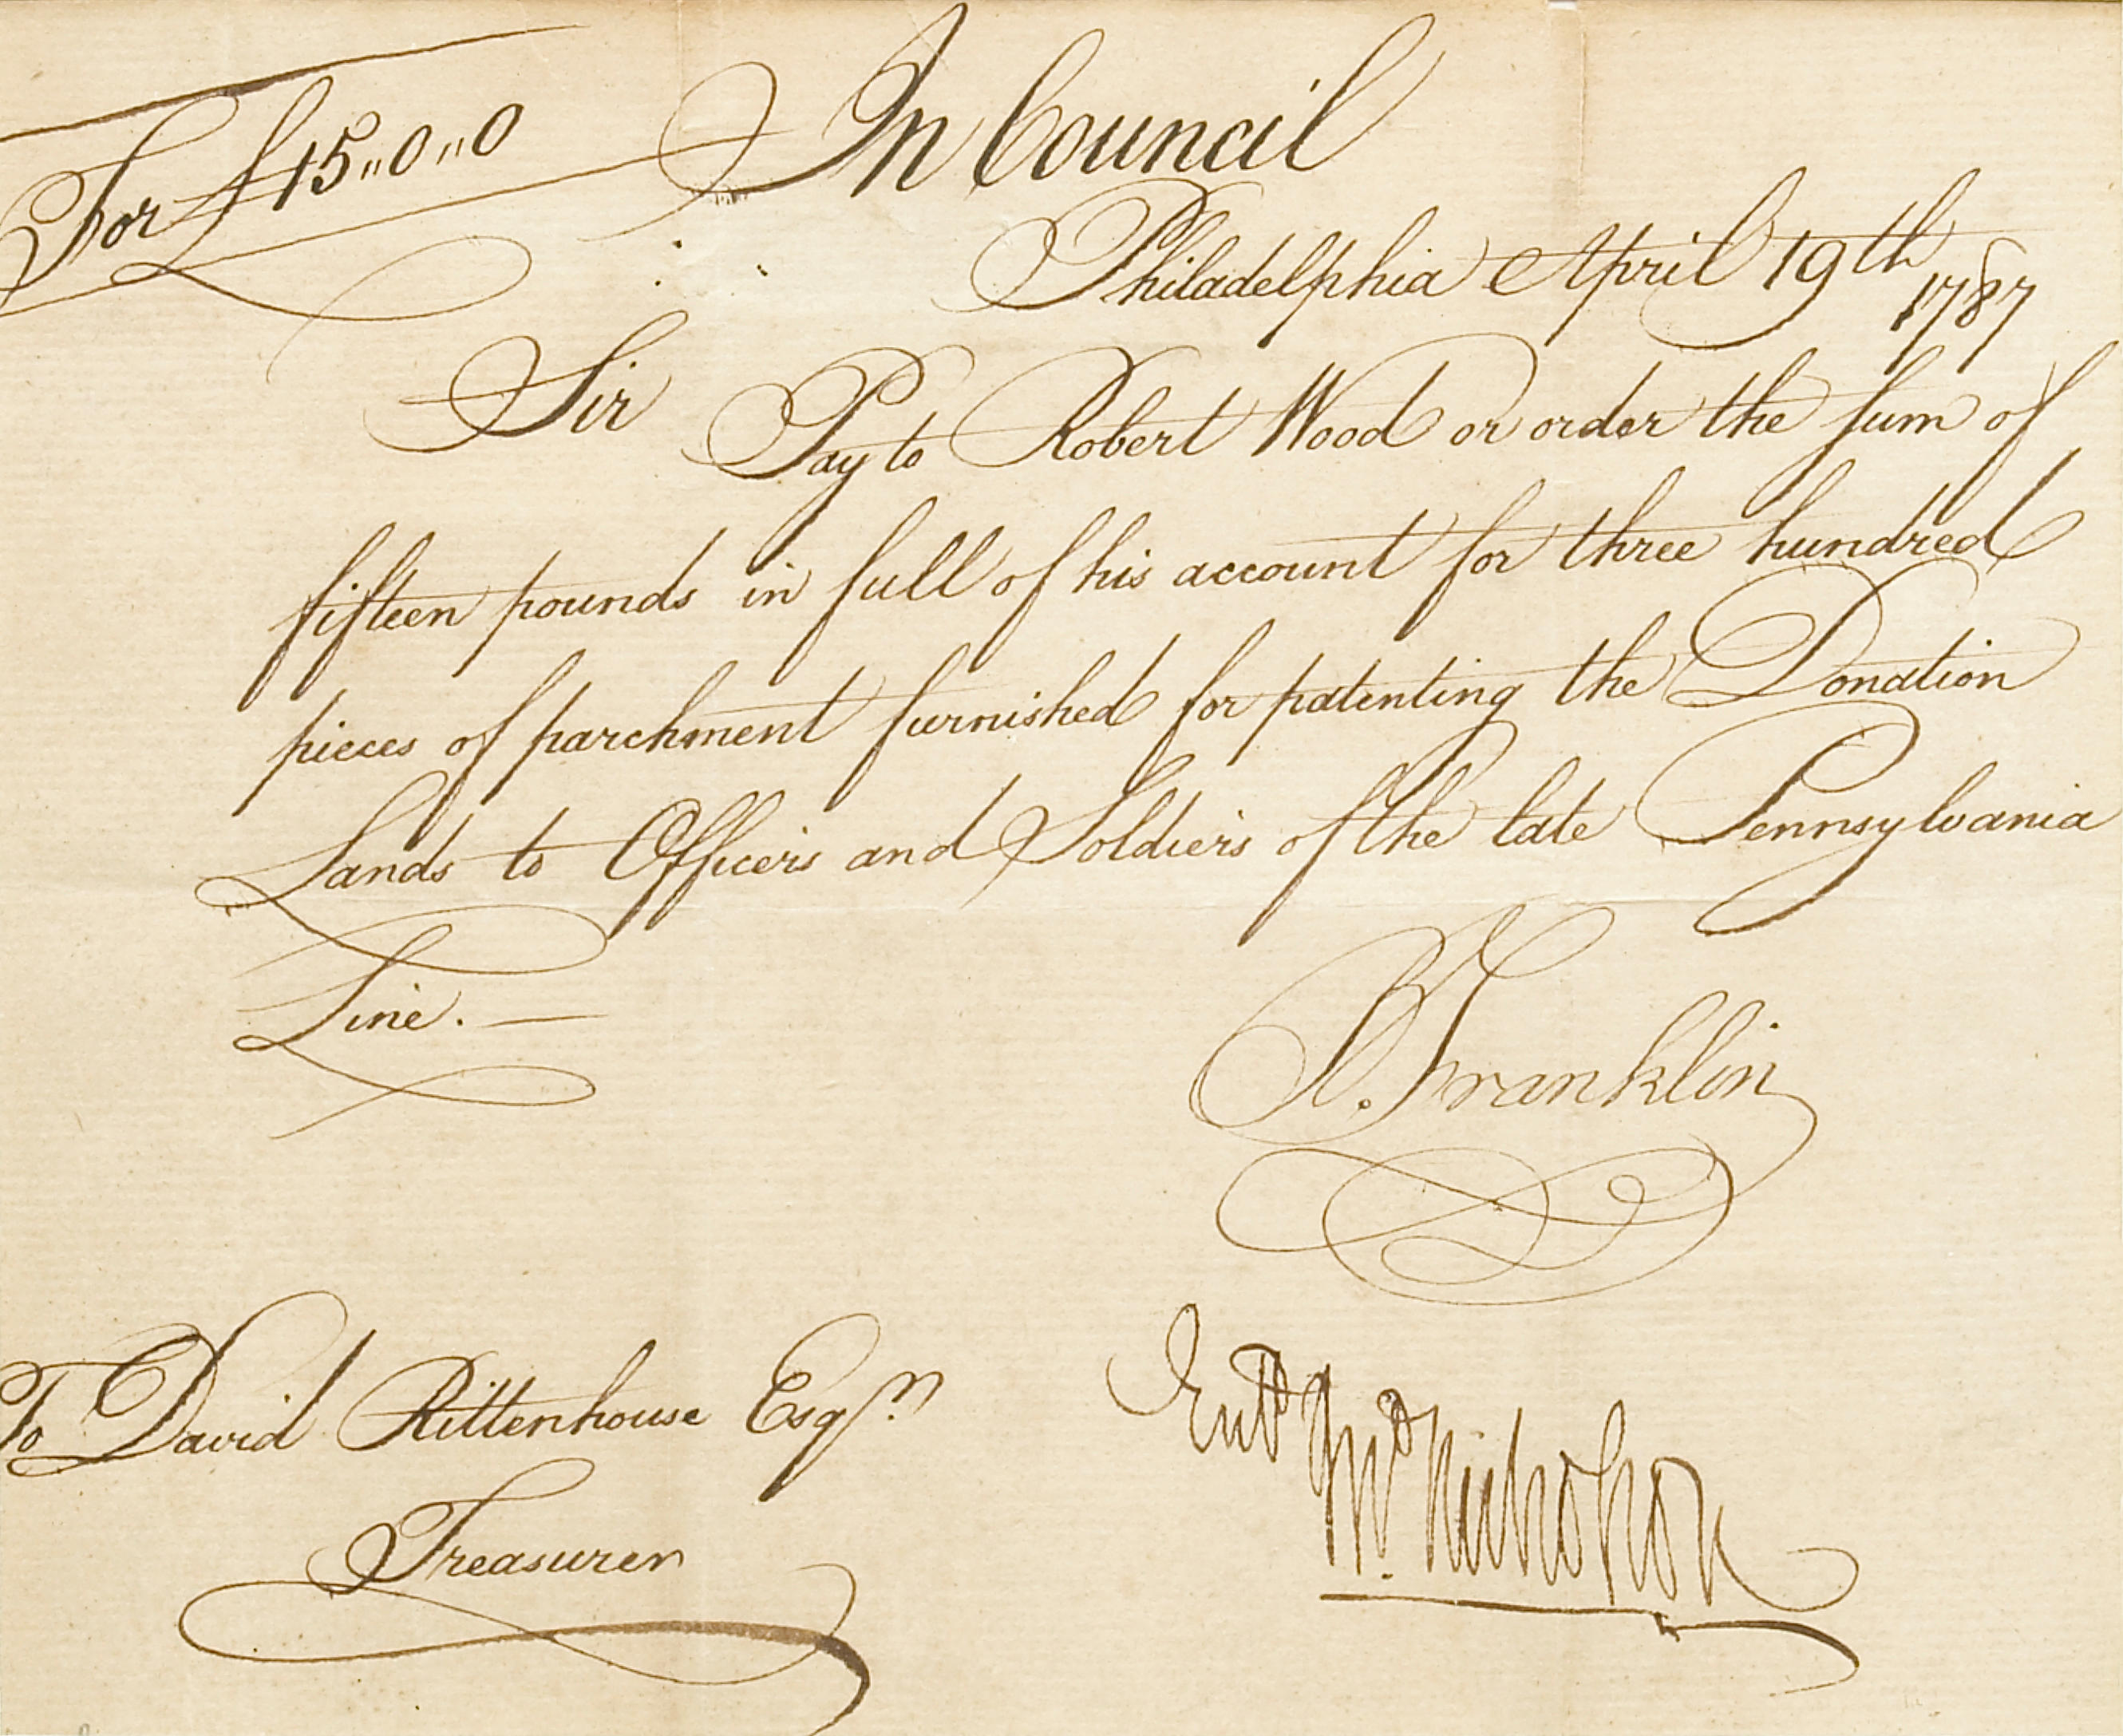 For £15,,0,,0
In Council
Philadelphia April 19th 1787
Sir Pay to Robert Wood or order the sum of
fifteen pounds in full of his account for three hundred
pieces of parchment furnished for patenting the Donation
Lands to Officers and Soldiers of the late Pennsylvania
Line. —
B. Franklin
To David Rittenhouse Esqr.
Treasurer
Entd Jno. Nicholson